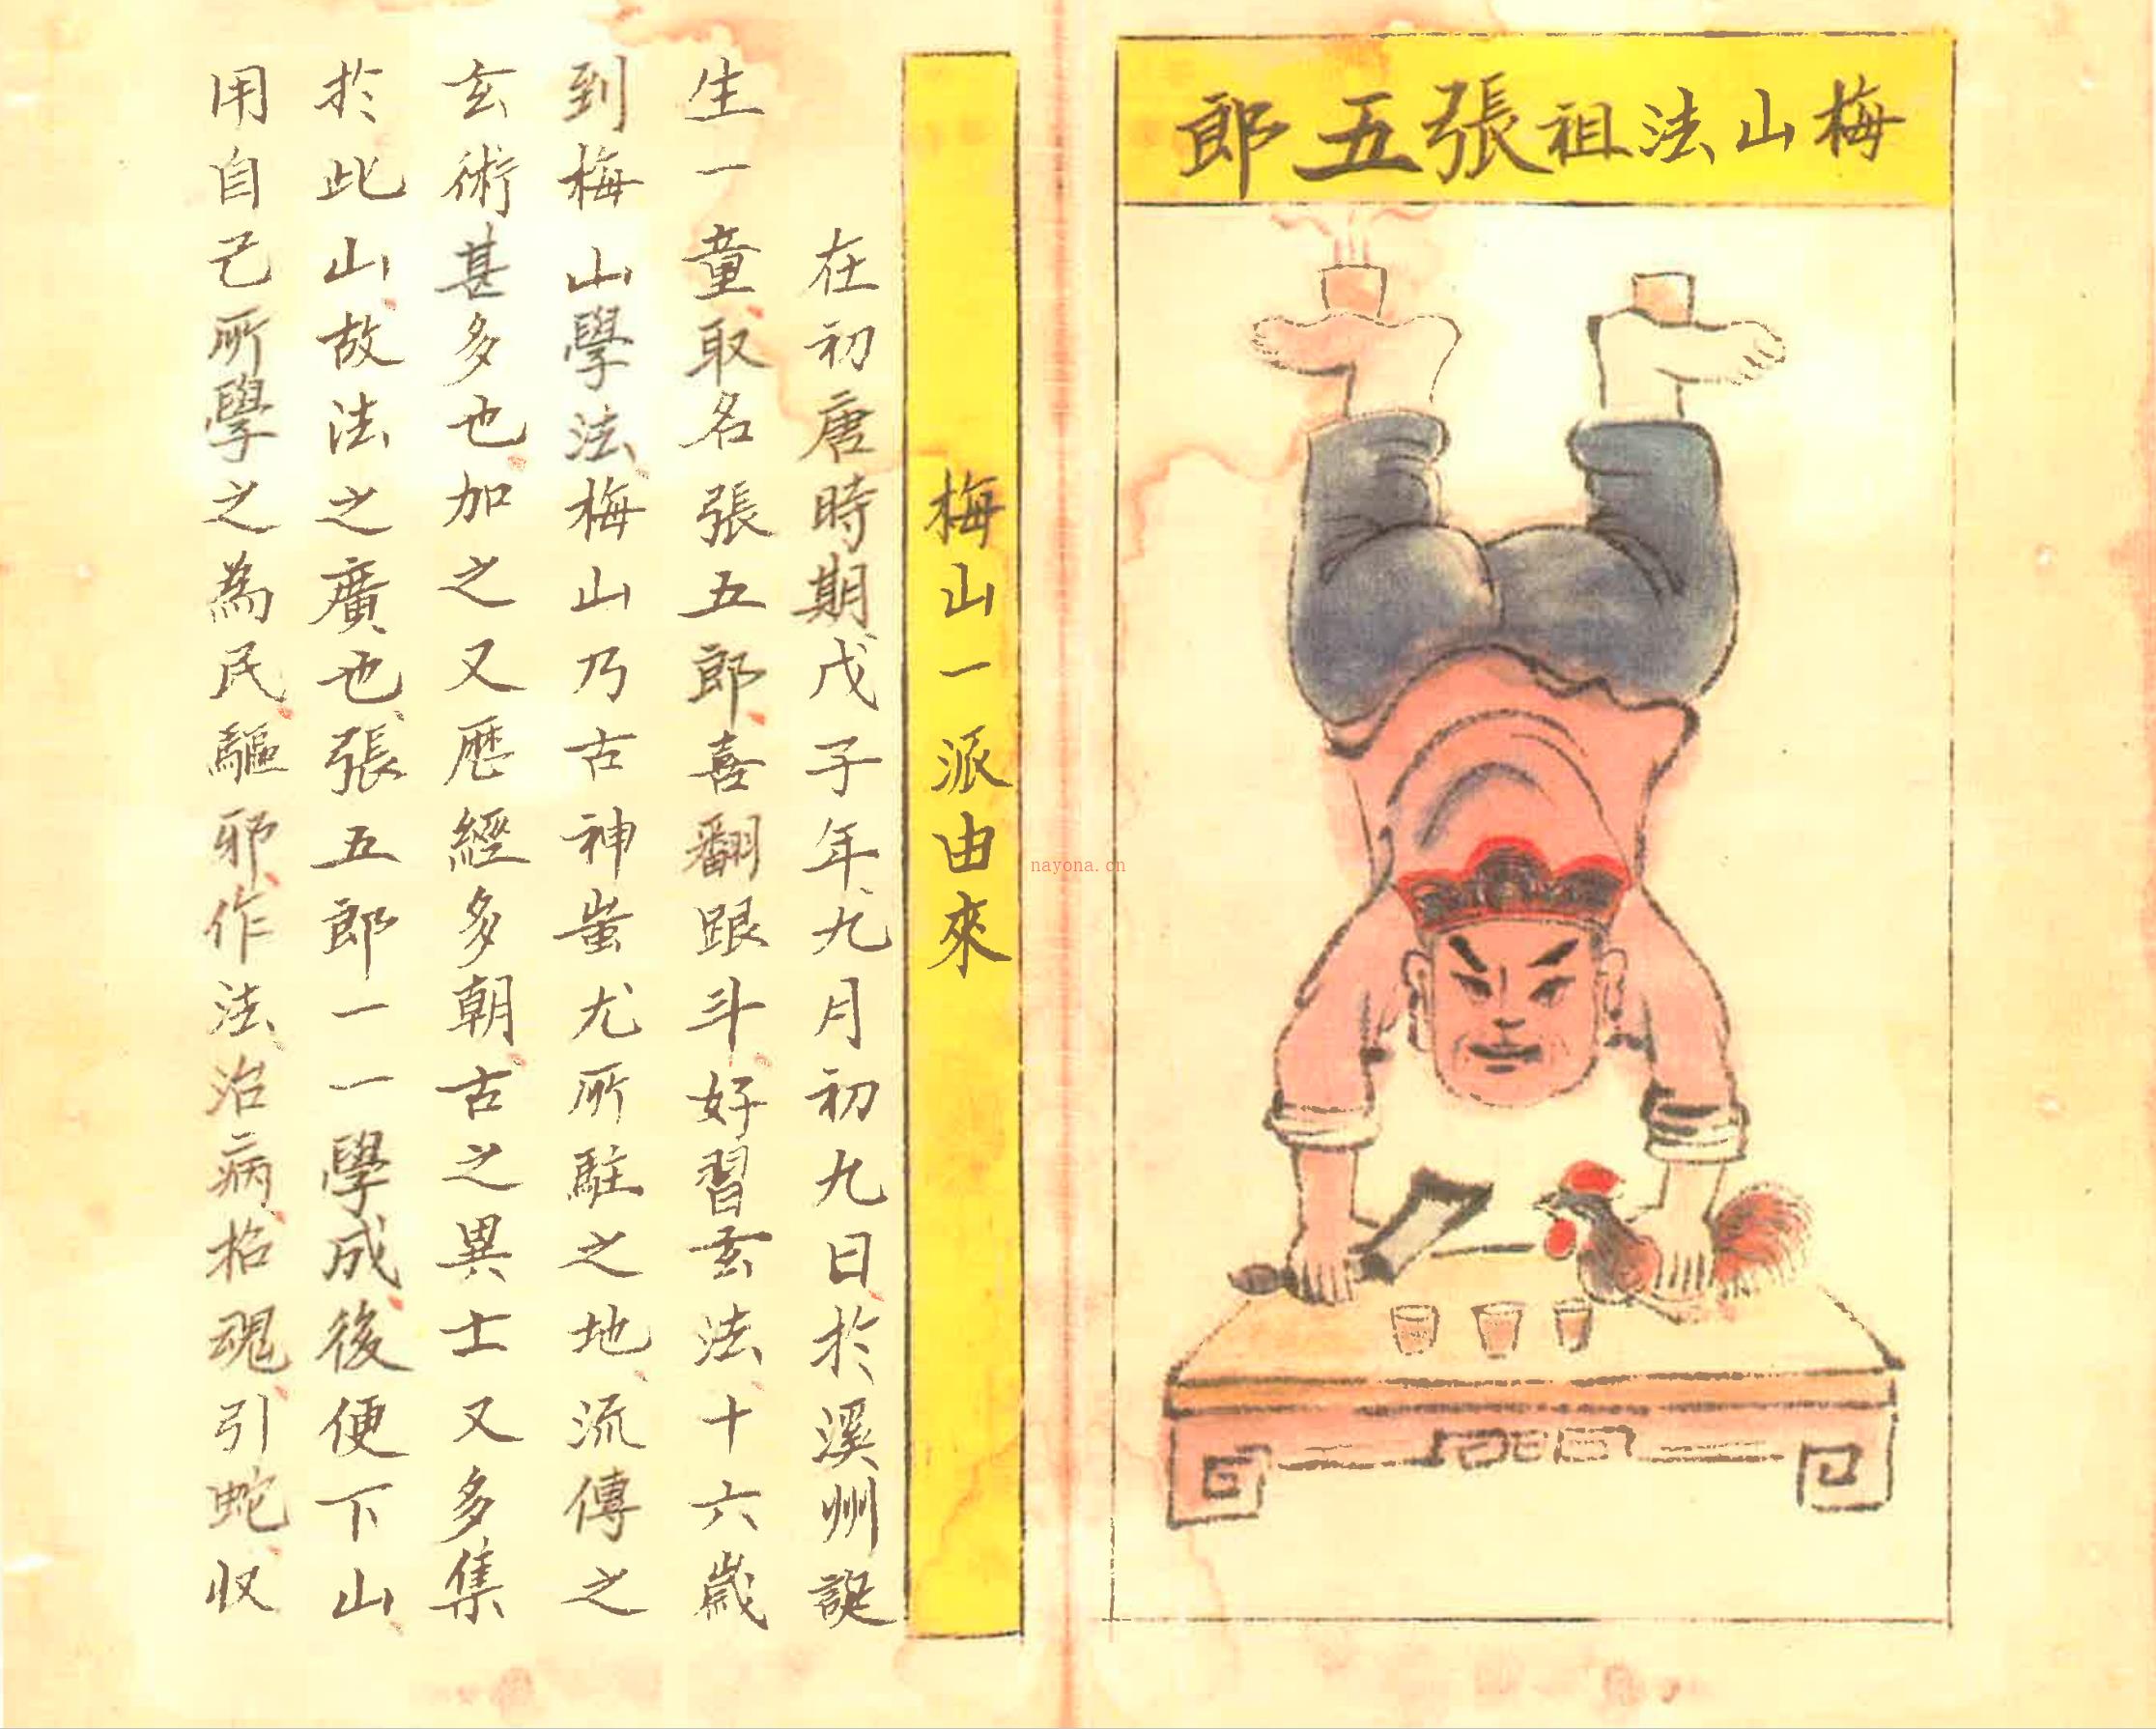 梅山法祖張五郎
梅山一派由來
在初唐時期戊子年、九月初九日、於溪州誕
生一童、取名張五郎、喜翻跟斗、好習玄法、十六歲
到梅山學法、梅山乃古神蚩尤所駐之地、流傳之
玄術甚多也、加之又歷經多朝、古之異士又多集
於此山、故法之廣也、張五郎一一學成、後便下山、
用自己所學之為民、驅邪、作法、治病、招魂、引蛇、收
nayona.cn